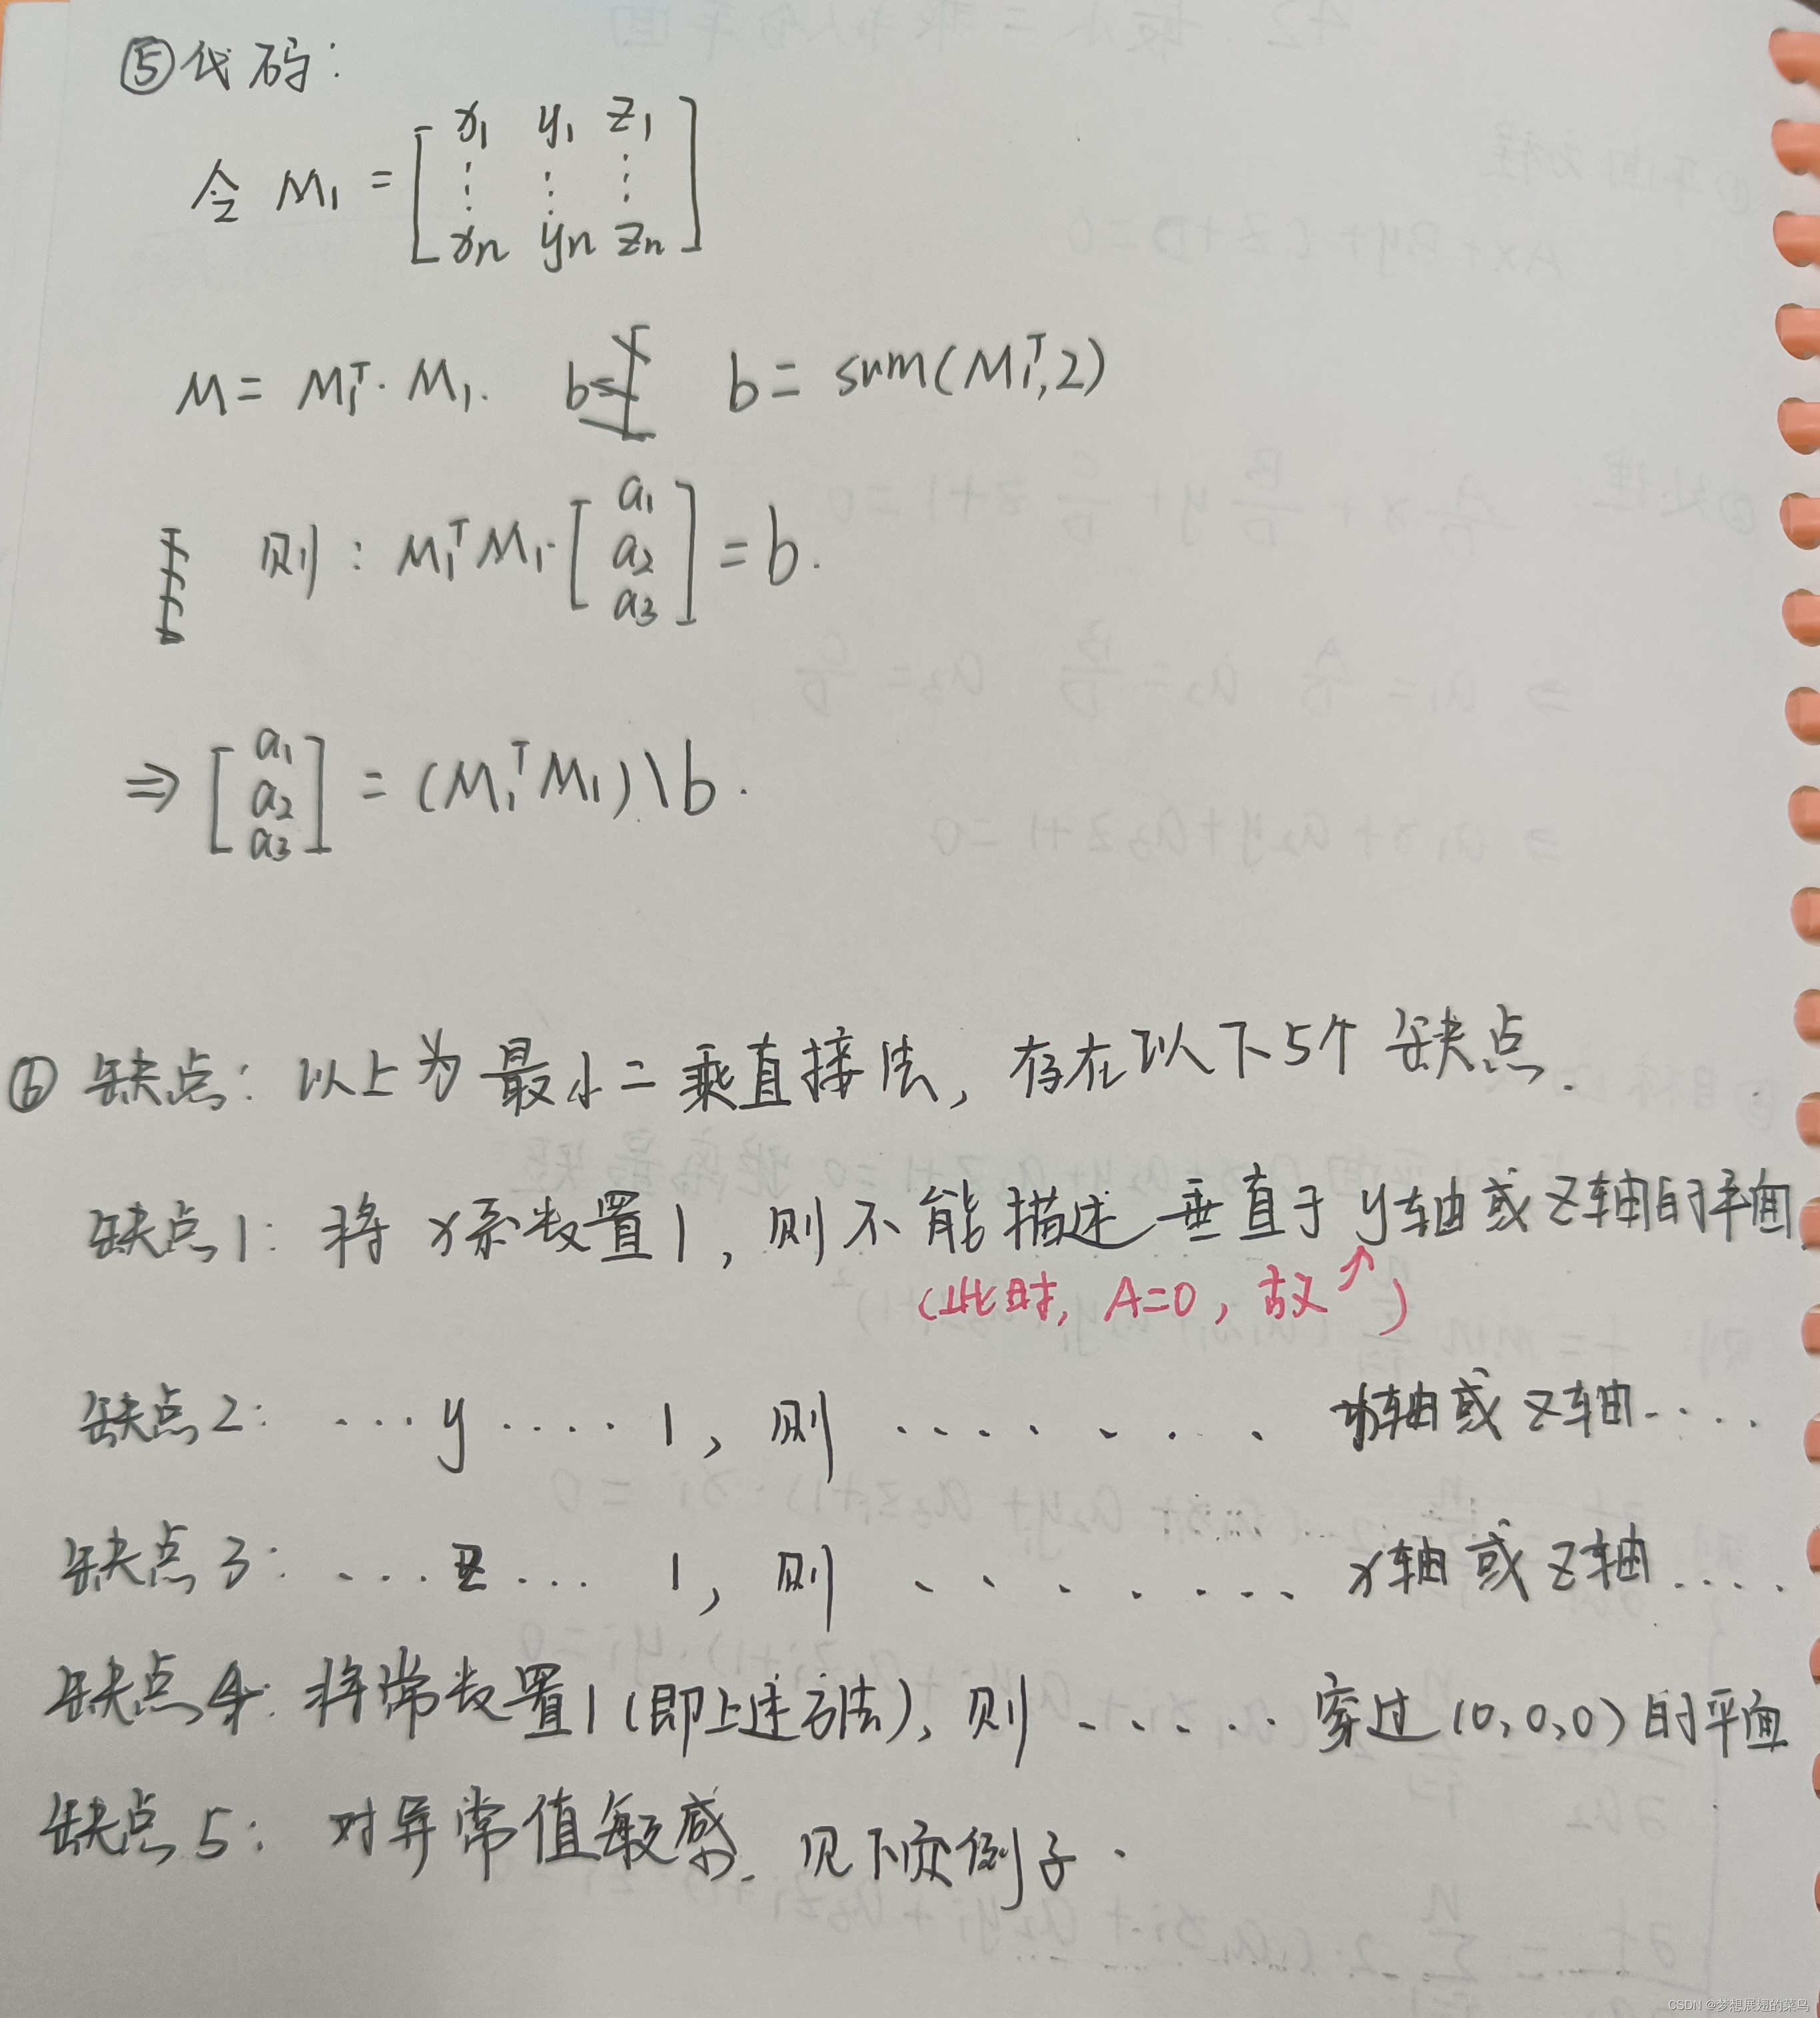 ⑤代码:
令 M₁ = [x₁ y₁ z₁
⋮ ⋮ ⋮
xₙ yₙ zₙ]
M = M₁ᵀ·M₁. b = sum(M₁ᵀ,2)
则: M₁ᵀM₁·[a₁ a₂ a₃] = b.
⇒ [a₁ a₂ a₃] = (M₁ᵀM₁)\b.
⑥ 缺点: 以上为最小二乘直接法, 存在以下5个缺点.
缺点1: 将x系数置1, 则不能描述垂直于y轴或z轴的平面
(此时, A=0, 故↑)
缺点2: ...y....1, 则....... x轴或z轴....
缺点3: ...z...1, 则........ x轴或z轴....
缺点4: 将常数置1(即上述方法), 则..... 穿过(0,0,0)的平面
缺点5: 对异常值敏感. 见下页例子.
CSDN @梦想展翅的菜鸟